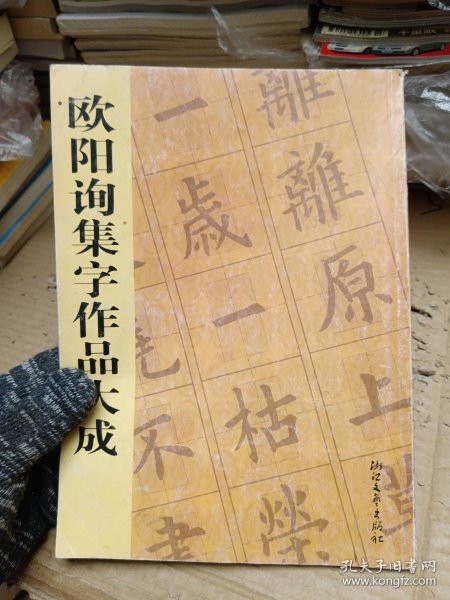 欧阳询集字作品大成
離離原上
一歳一枯榮
不
浙江文艺出版社
孔夫子旧书网
www.kongfz.com